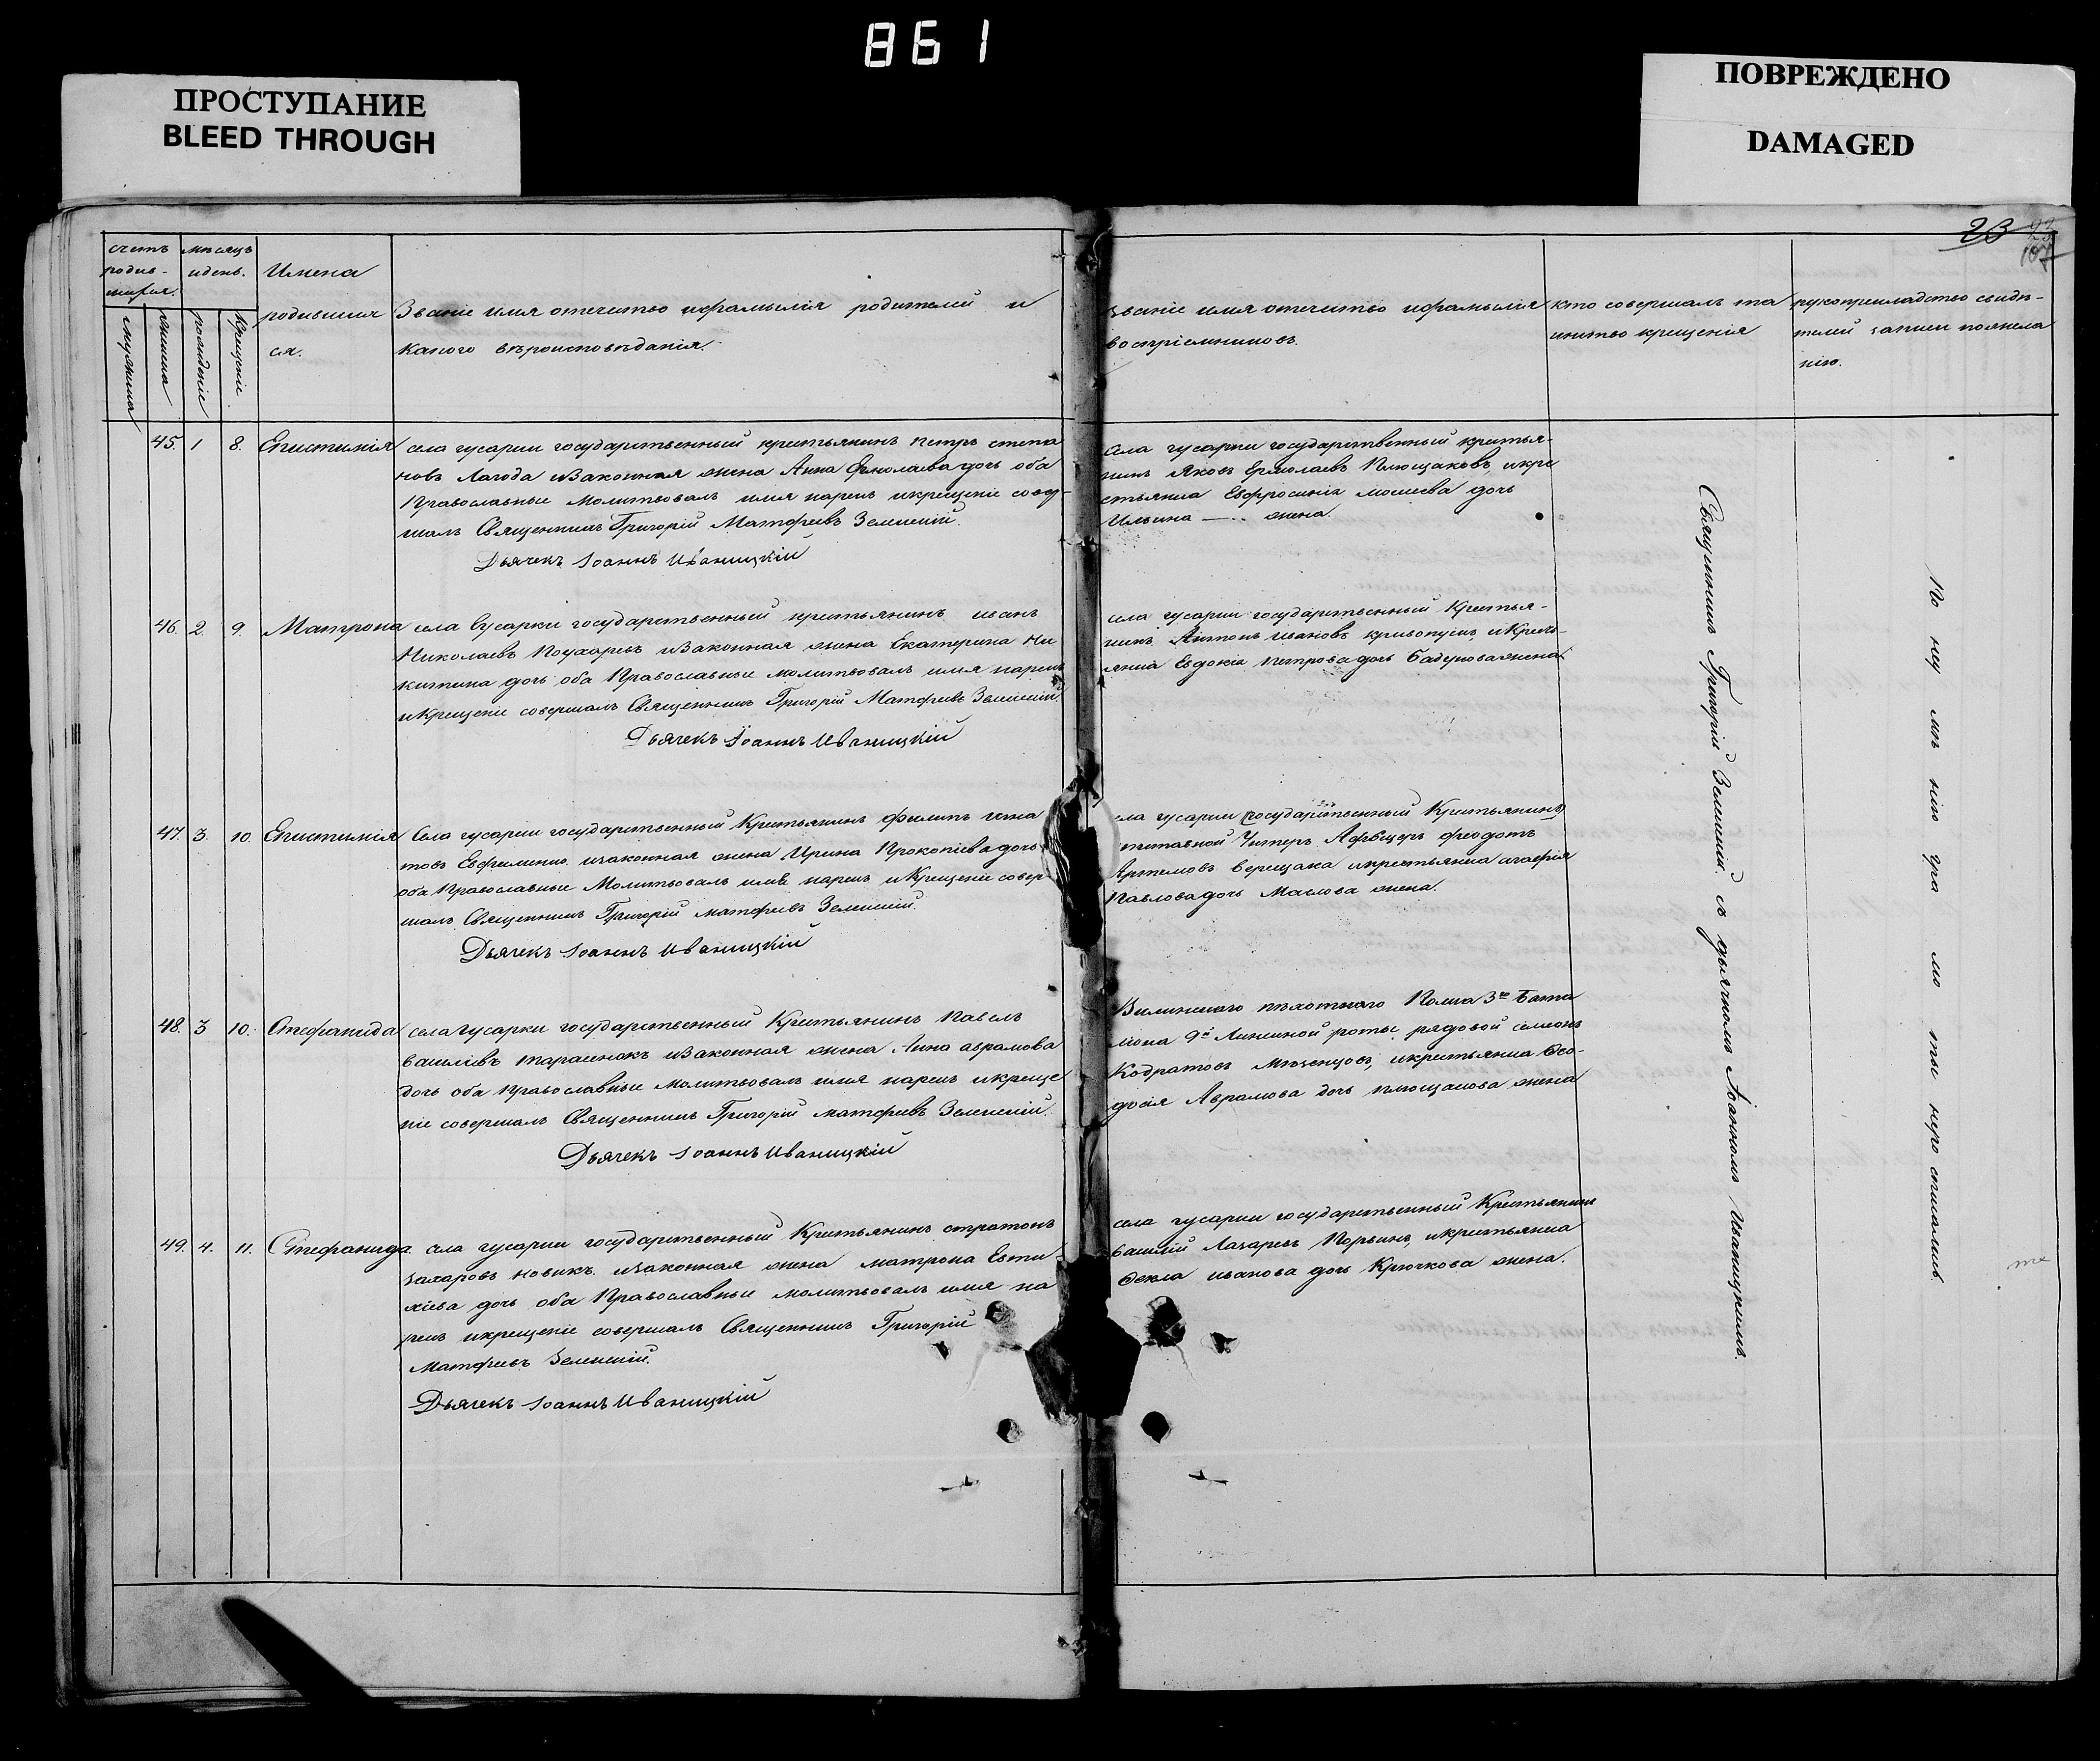 861
ПРОСТУПАНИЕ
BLEED THROUGH
ПОВРЕЖДЕНО
DAMAGED
23
счетъ
родив-
шихся.
мѣсяцъ
идень.
Имена
родившия
ся.
рожденіе
крещеніе
Званіе имя отечетво ифамылія родителей и
какого вѣроисповѣданія.
Званіе имя отечетво ифамылія
воспріемниковъ.
кто совершалъ та
интво крещенія
рукоприкладство свидѣ-
телей записи пожела
нію.
45. 1 8. Епистимія
села гусарки государственный крестьянинъ петръ степа
новъ Лагода изаконная жена Анна Ермолаева дочь оба
Православные Молитвовалъ имя нарекъ икрещеніе совер-
шалъ Священникъ Григорій Матфеевъ Зеленскій.
Дьячекъ Іоаннъ Иваницкій
села гусарки государственный крестья-
нинъ Яковъ Ермолаевъ Плющаковъ, икре
стьянка Евфросинія мосиева дочь
Ильина жена.
46. 2. 9. Матрона
села Гусарки государственный крестьянинъ иванъ
Николаевъ Поухаревъ изаконная жена Екатерина Ни
китина дочь оба Православные молитвовалъ имя нарекъ
икрещеніе совершалъ Священникъ Григорій Матфеевъ Зеленскій.
Дьячекъ Іоаннъ Иваницкій
села гусарки государственный Крестья-
нинъ Антонъ ивановъ кривопускъ, иКресть-
янка Евдокія петрова дочь Бадунова жена
47. 3. 10. Епистимія
Села гусарки государственный Крестьянинъ филипъ игна
товъ Евфименко изаконная жена Ирина Прокопіева дочь
оба Православные Молитвовалъ имя нарекъ иКрещеніе совер-
шалъ Священникъ Григорій матфеевъ Зеленскій.
Дьячекъ Іоаннъ Иваницкій
села гусарки государственный Крестьянинъ
феодотъ
Артемовъ верещака икрестьянка агафія
Павлова дочь Маслова жена.
48. 3 10. Стефанида
села гусарки государственный Крестьянинъ Павелъ
василіевъ тарасенокъ изаконная жена Анна аврамова
дочь оба православные Молитвовалъ имя нарекъ икреще
ніе совершалъ Священникъ Григорій матфеевъ Зеленскій.
Дьячекъ Іоаннъ Иваницкій
Виленскаго пѣхотнаго Полка 3го Бата
ліона 9й Линейной роты рядовой семеонъ
Кодратовъ икрестьянка Ѳео-
досія Аврамова дочь плющакова жена
49. 4. 11. Стефанида.
села гусарки государственный Крестьянинъ стратонъ
захаровъ новикъ изаконная жена матрона Евти
хіева дочь оба Православные молитвовалъ имя на
рекъ икрещеніе совершалъ Священникъ Григорій
Матфеевъ Зеленскій.
Дьячекъ Іоаннъ Иваницкій
села гусарки государственный Крестьянинъ
василій Лазаревъ Порывинъ, икрестьянка
Ѳекла иванова дочь Крючкова жена.
Священникъ Григорій Зеленскій съ дьячкомъ Іоанномъ Иваницкимъ.
По неу мѣ нію гра мо ты неро списались.